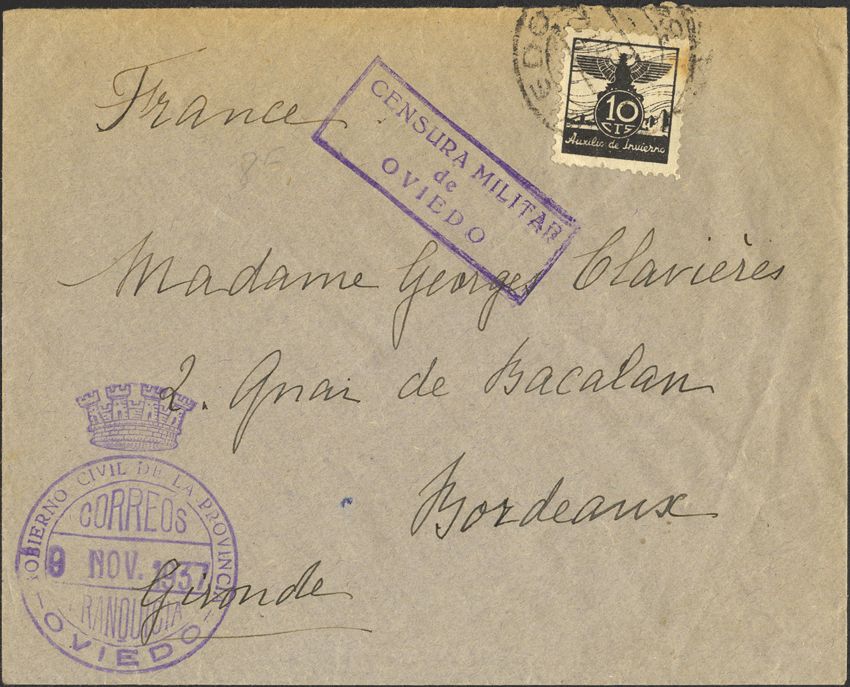 France
CENSURA MILITAR
de
OVIEDO
EDO
10
CTS
Auxilio de Invierno
Madame Georges Clavières
2. Quai de Bacalan
Bordeaux
Gironde
GOBIERNO CIVIL DE LA PROVINCIA
CORREOS
9 NOV. 1937
RANQUICIA
OVIEDO